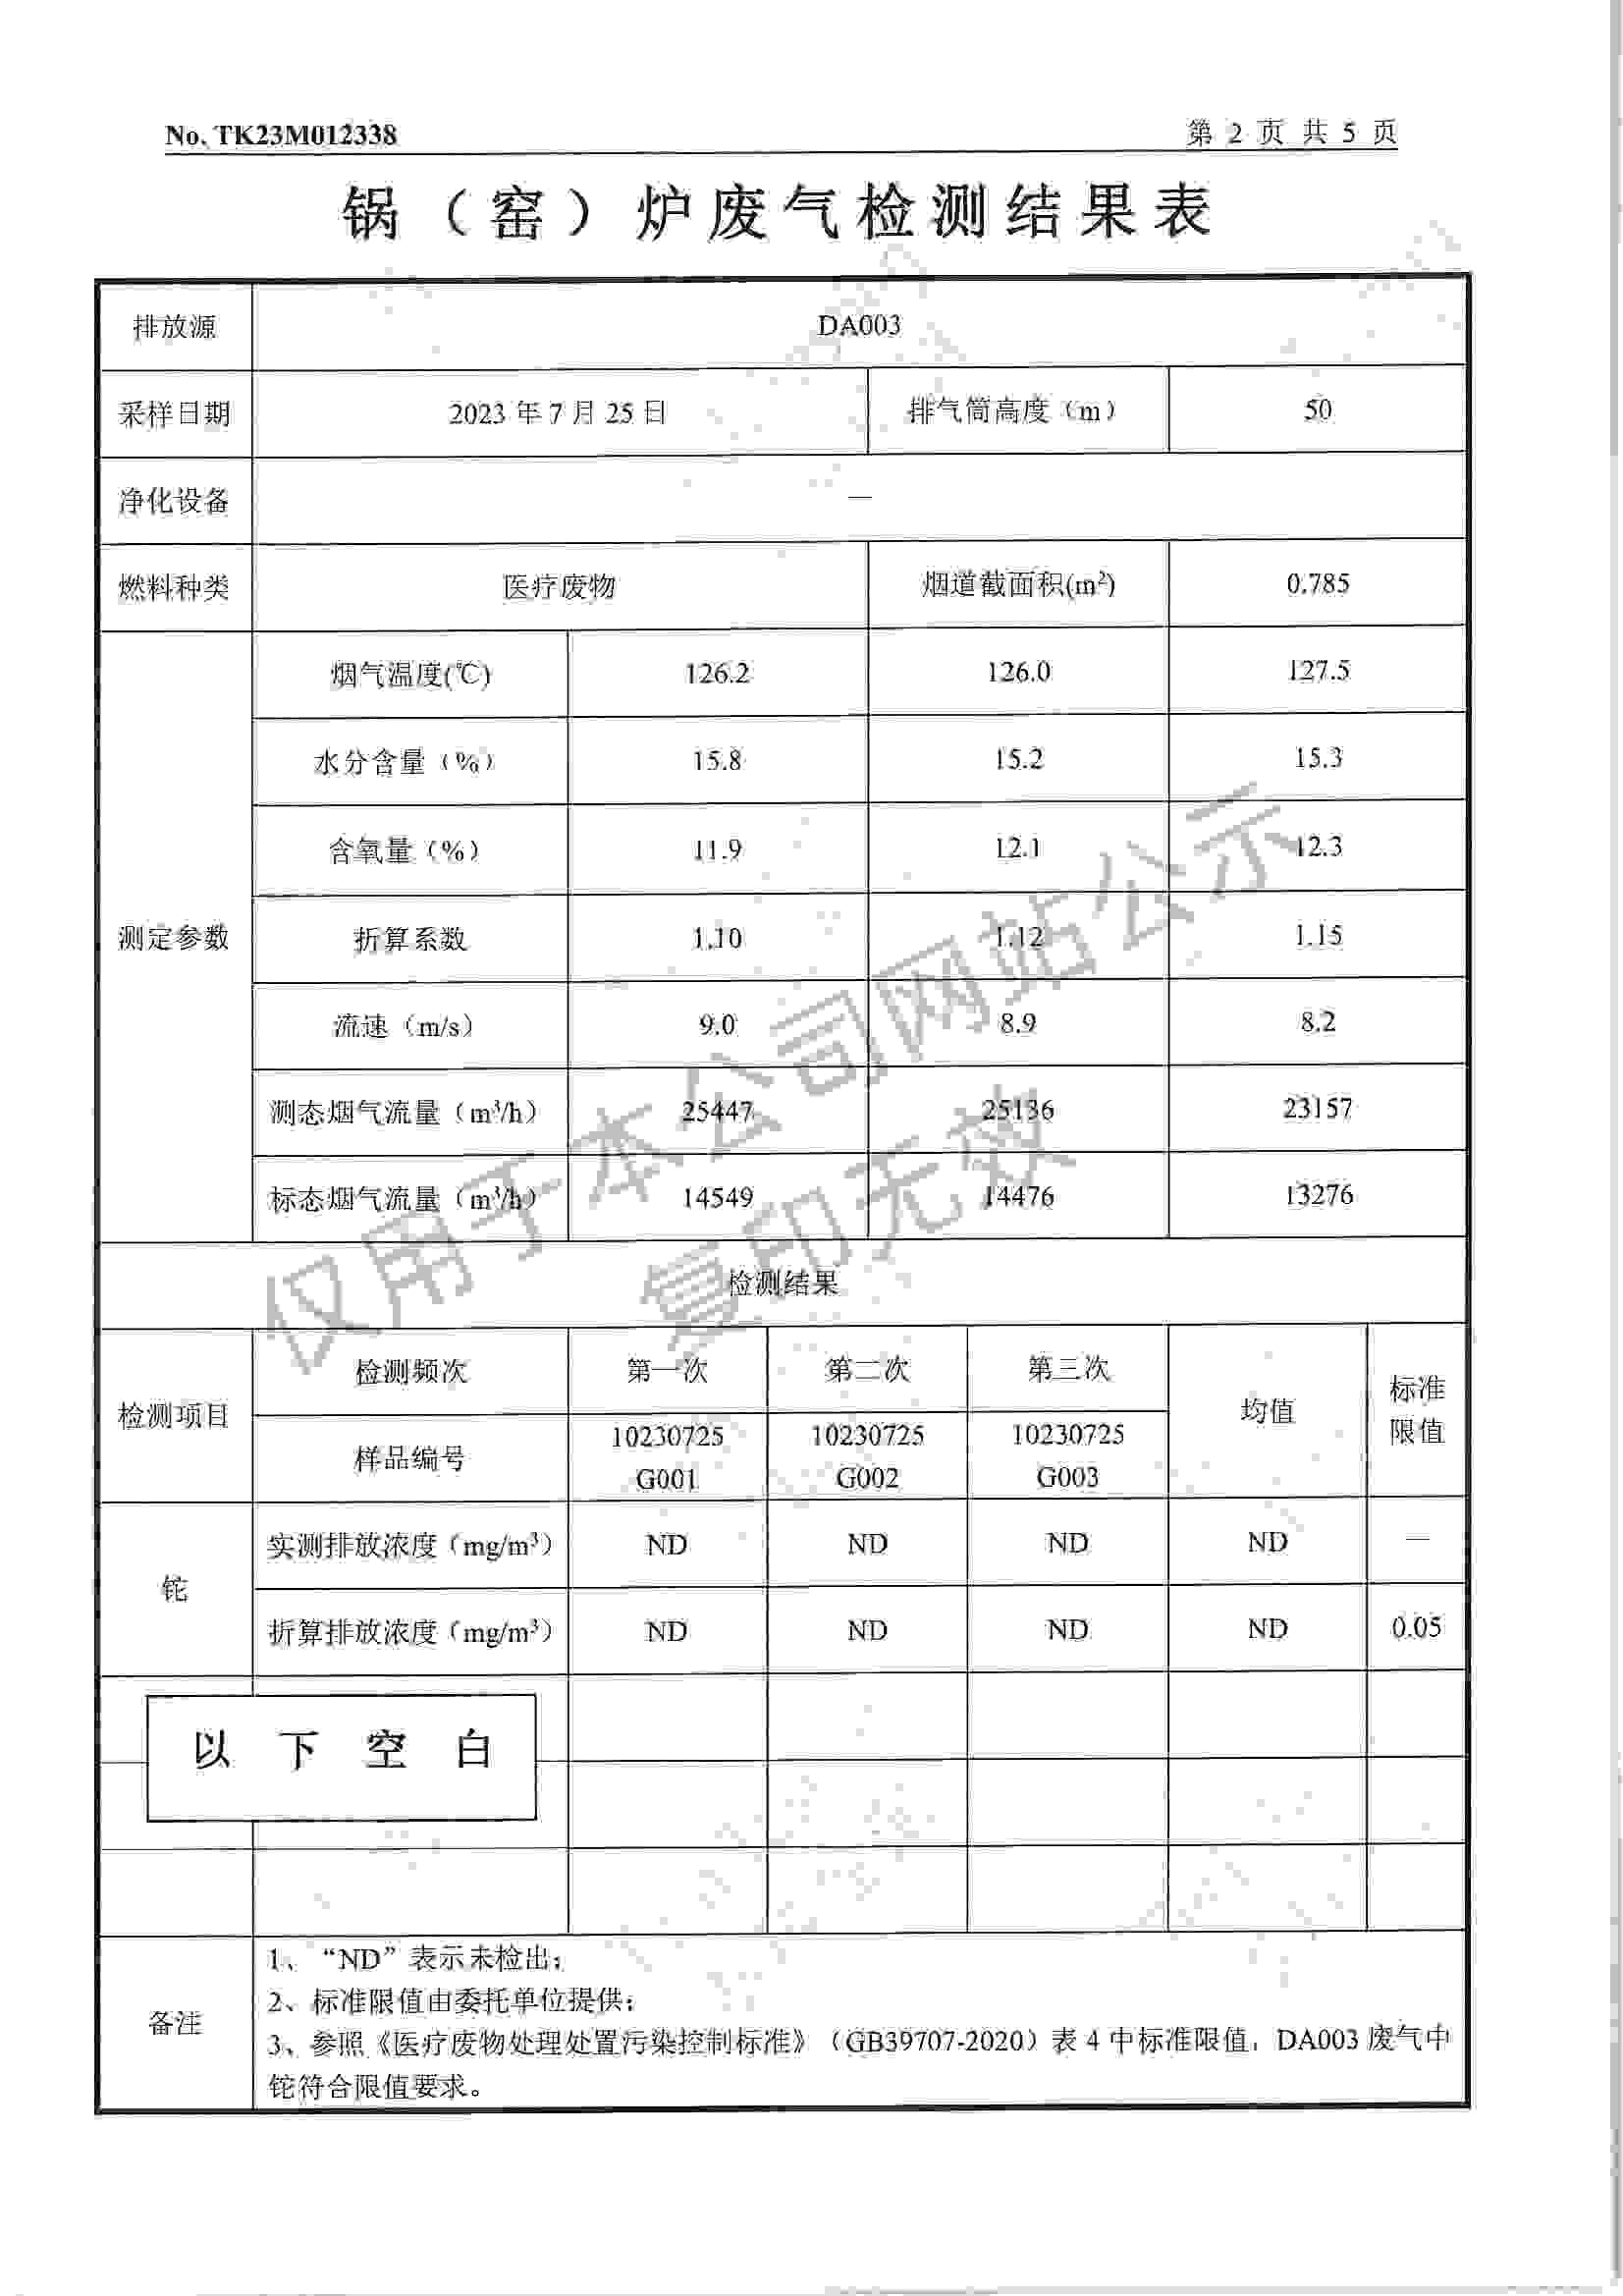 No. TK23M012338
第 2 页 共 5 页
锅（窑）炉废气检测结果表
排放源 DA003
采样日期 2023 年 7 月 25 日 排气筒高度（m） 50
净化设备 —
燃料种类 医疗废物 烟道截面积(m²) 0.785
测定参数
烟气温度(℃) 126.2 126.0 127.5
水分含量（%） 15.8 15.2 15.3
含氧量（%） 11.9 12.1 12.3
折算系数 1.10 1.12 1.15
流速（m/s） 9.0 8.9 8.2
测态烟气流量（m³/h） 25447 25136 23157
标态烟气流量（m³/h） 14549 14476 13276
检测结果
检测项目 检测频次 第一次 第二次 第三次 均值 标准
限值
样品编号 10230725 10230725 10230725
G001 G002 G003
铊
实测排放浓度（mg/m³） ND ND ND ND —
折算排放浓度（mg/m³） ND ND ND ND 0.05
以 下 空 白
备注
1、“ND”表示未检出；
2、标准限值由委托单位提供；
3、参照《医疗废物处理处置污染控制标准》（GB39707-2020）表 4 中标准限值，DA003 废气中
铊符合限值要求。
仅用于本公司网站公示
复印无效